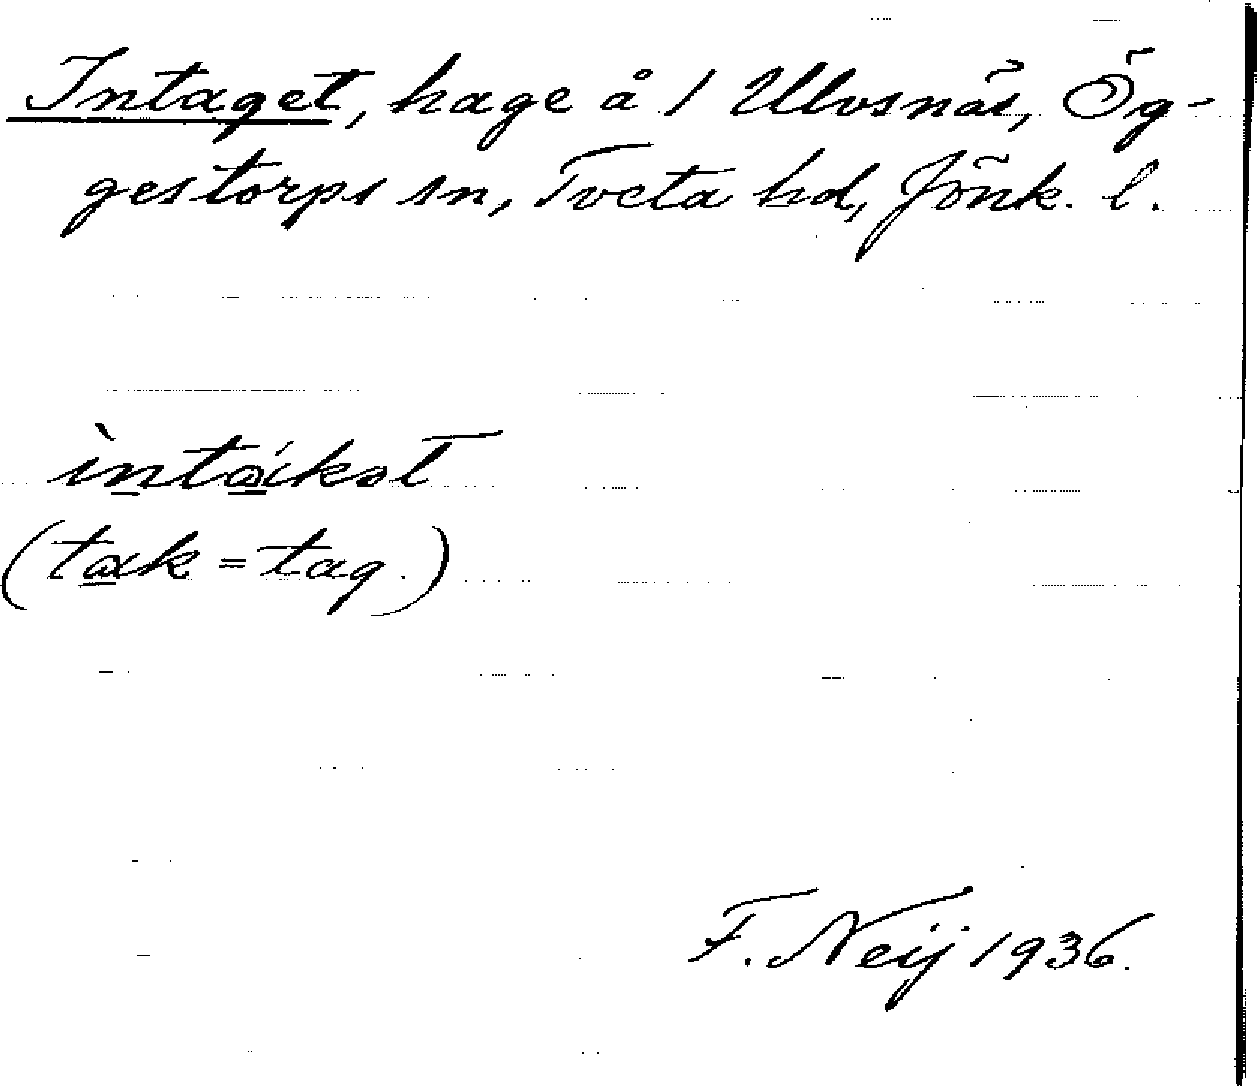 Intaget, hage å 1 Ulvsnäs, Ög-
gestorps sn, Tveta hd, Jönk. l.
ìntɑ́kət
(tɑk = tag.)
F. Neij 1936.